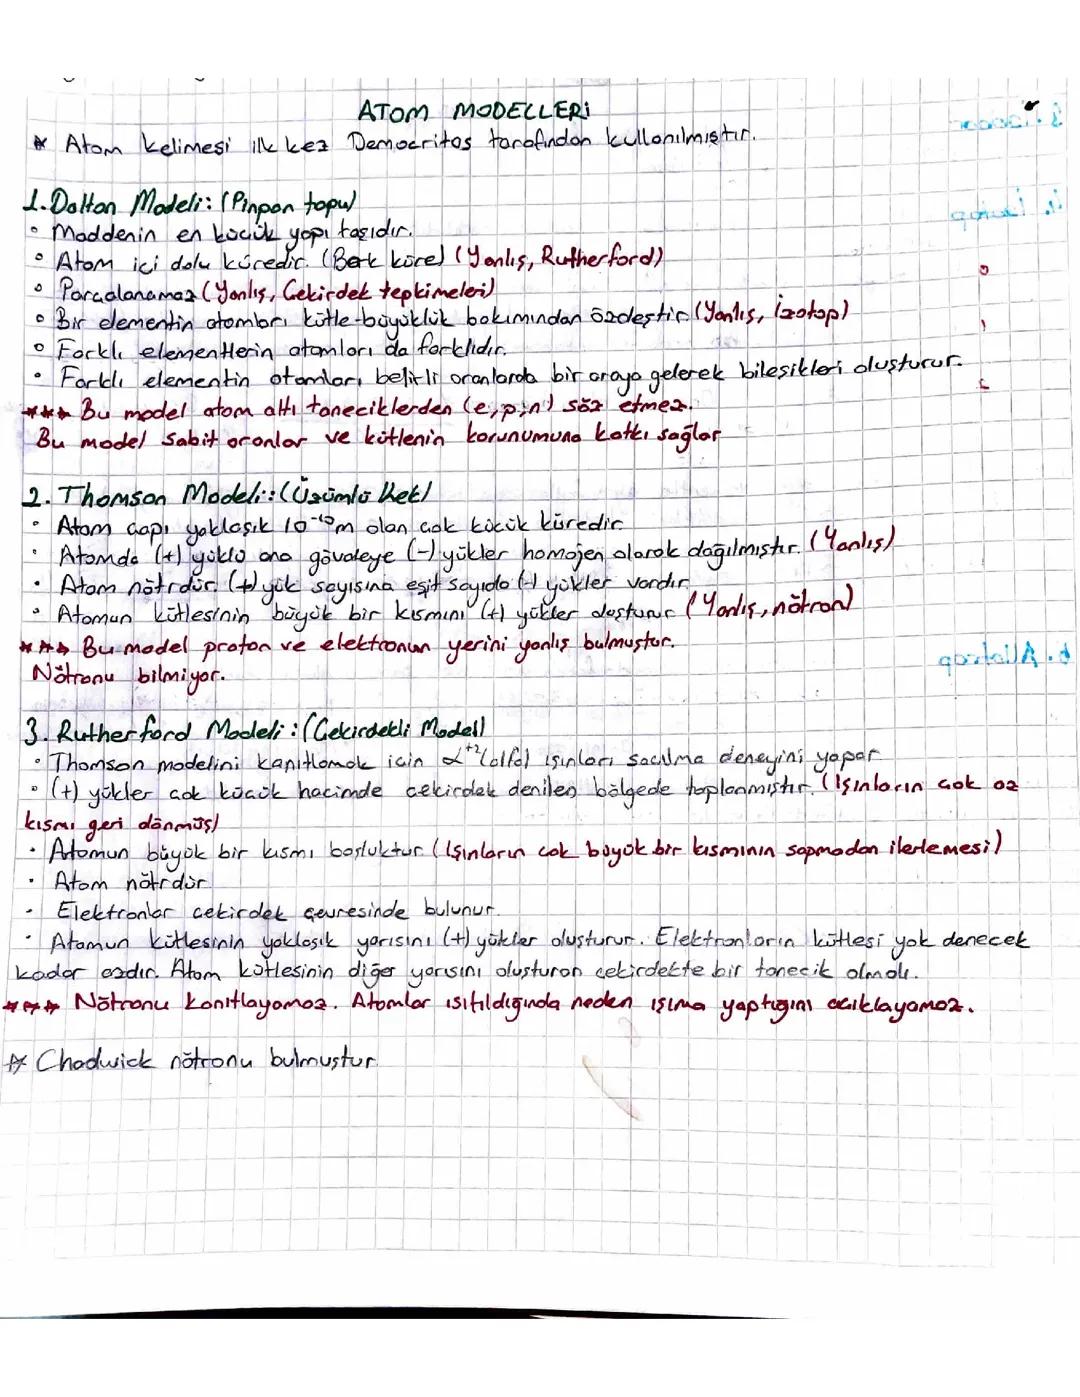 ATOM MODELLERİ
* Atom kelimesi ilk kez Democritos tarafından kullanılmıştır.
1. Dalton Modeli: (Pinpon topu)
• Maddenin en küçük yapı taşıdır.
• Atom içi dolu küredir. (Berk küre) (Yanlış, Rutherford)
• Parçalanamaz (Yanlış, Çekirdek tepkimeleri)
• Bir elementin atomları kütle-büyüklük bakımından özdeştir (Yanlış, İzotop)
• Farklı elementlerin atomları da farklıdır.
• Farklı elementin atomları, belirli oranlarda bir araya gelerek bileşikleri oluşturur.
*** Bu model atom altı taneciklerden (e,p,n) söz etmez.
Bu model sabit oranlar ve kütlenin korunumuna katkı sağlar
2. Thomson Modeli: (Üzümlü Kek)
• Atom çapı yaklaşık 10⁻¹⁰m olan çok küçük küredir
• Atomda (+) yüklü ana gövdeye (-) yükler homojen olarak dağılmıştır. (Yanlış)
• Atom nötrdür. (+) yük sayısına eşit sayıda (-) yükler vardır.
• Atomun kütlesinin büyük bir kısmını (+) yükler oluşturur (Yanlış, nötron)
*** Bu model proton ve elektronun yerini yanlış bulmuştur.
Nötronu bilmiyor.
6. Allotrop
3. Rutherford Modeli: (Çekirdekli Model)
• Thomson modelini kanıtlamak için α⁺² (alfa) ışınları saçılma deneyini yapar
• (+) yükler çok küçük hacimde çekirdek denilen bölgede toplanmıştır. (Işınların çok az
kısmı geri dönmüş)
• Atomun büyük bir kısmı boşluktur (Işınların çok büyük bir kısmının sapmadan ilerlemesi)
• Atom nötrdür
• Elektronlar çekirdek çevresinde bulunur.
• Atomun kütlesinin yaklaşık yarısını (+) yükler oluşturur. Elektronların kütlesi yok denecek
kadar azdır. Atom kütlesinin diğer yarısını oluşturan çekirdekte bir tanecik olmalı.
*** Nötronu kanıtlayamaz. Atomlar ısıtıldığında neden ışıma yaptığını açıklayamaz.
* Chadwick nötronu bulmuştur.